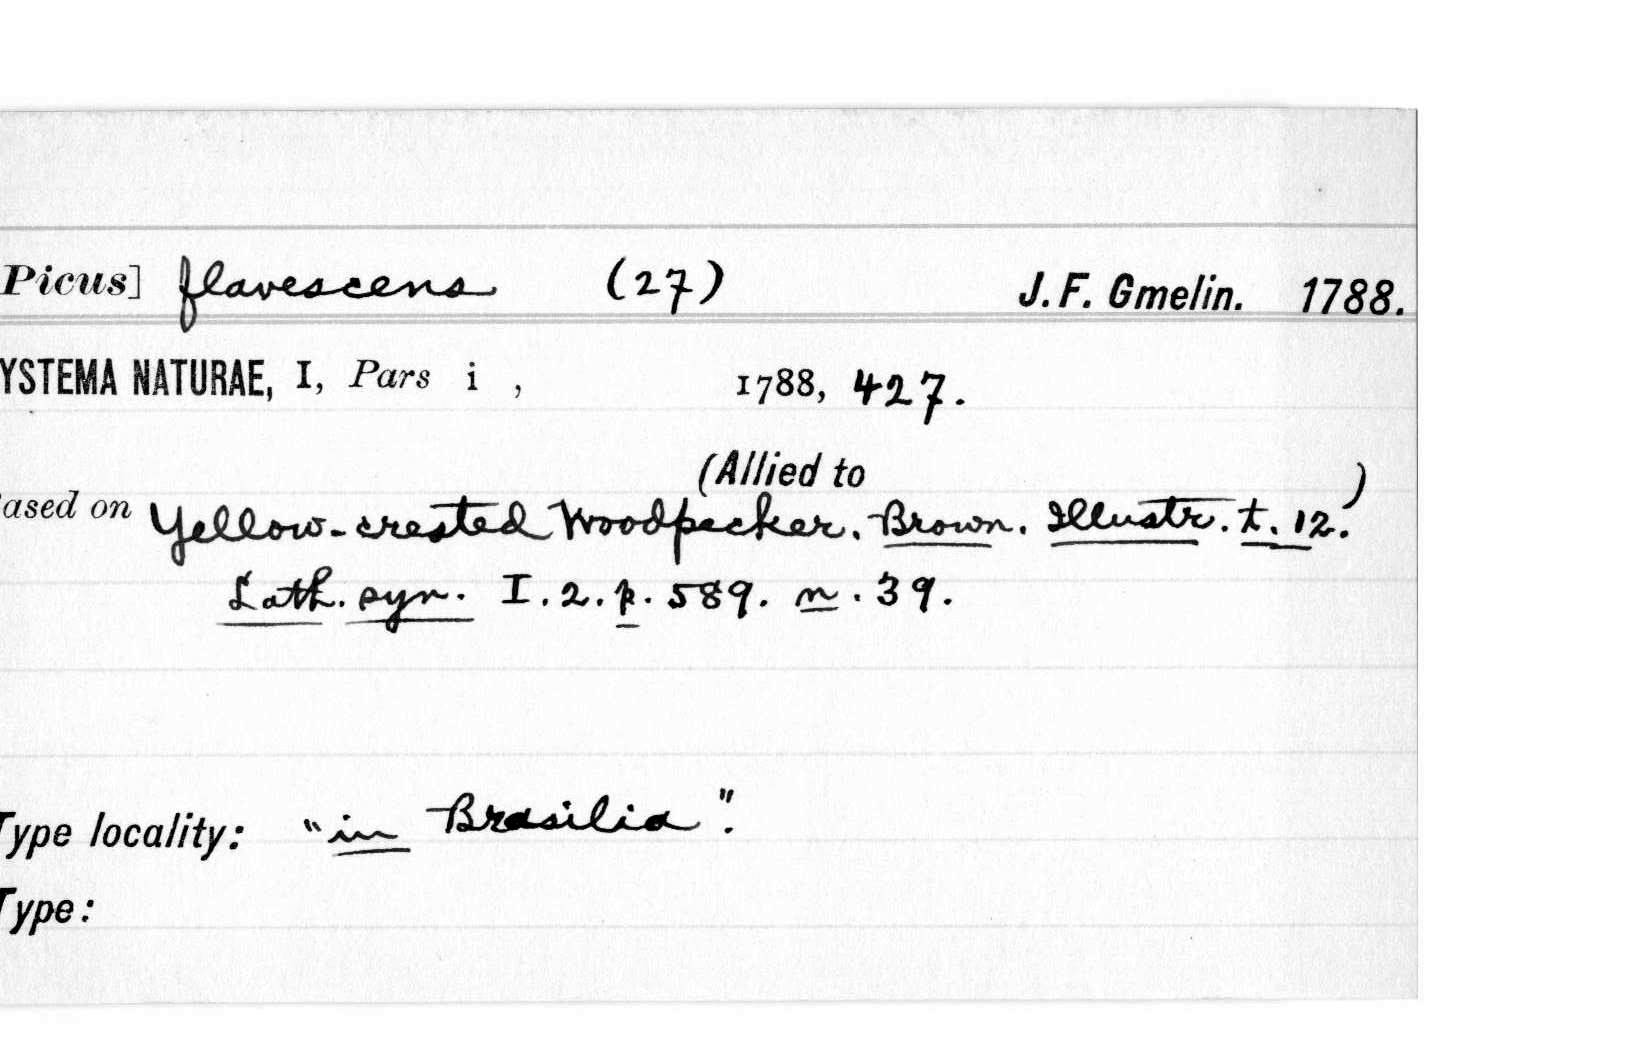 Picus] flavescens (27) J. F. Gmelin. 1788.
YSTEMA NATURAE, I, Pars i , 1788, 427.
(Allied to )
ased on Yellow-crested Woodpecker. Brown. Illustr. t. 12.
Lath. syn. I. 2. p. 589. n. 39.
Type locality: "in Brasilia".
Type: